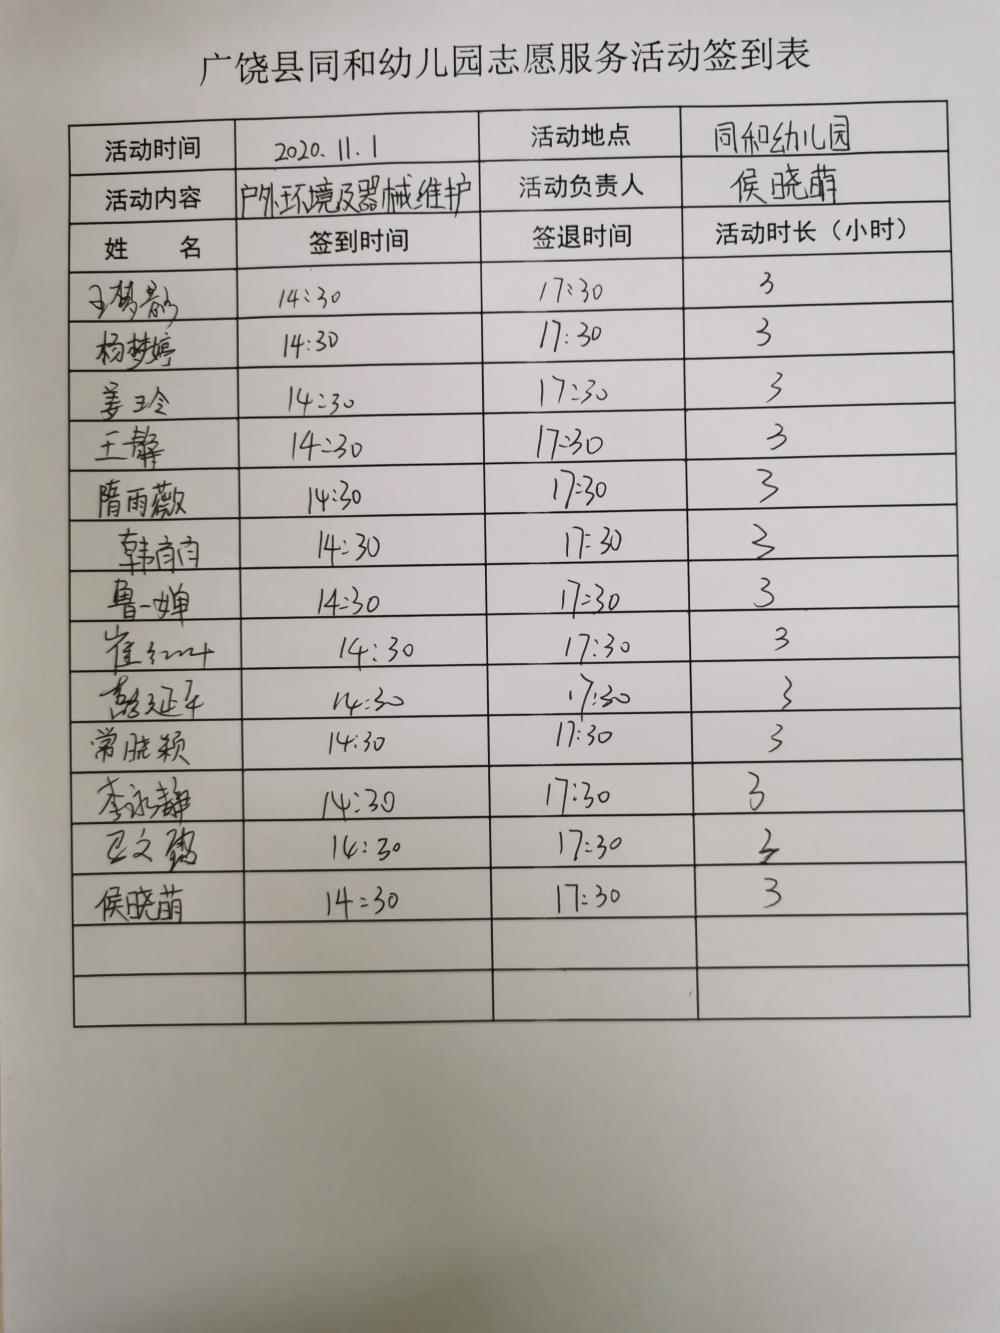 广饶县同和幼儿园志愿服务活动签到表
活动时间 2020.11.1 活动地点 同和幼儿园
活动内容 户外环境及器械维护 活动负责人 侯晓萌
姓 名 签到时间 签退时间 活动时长（小时）
王梦影 14:30 17:30 3
杨梦婷 14:30 17:30 3
姜玲 14:30 17:30 3
王静 14:30 17:30 3
隋雨薇 14:30 17:30 3
韩肖肖 14:30 17:30 3
鲁一婵 14:30 17:30 3
崔 14:30 17:30 3
彭延平 14:30 17:30 3
常晓颖 14:30 17:30 3
李咏静 14:30 17:30 3
文 14:30 17:30 3
侯晓萌 14:30 17:30 3